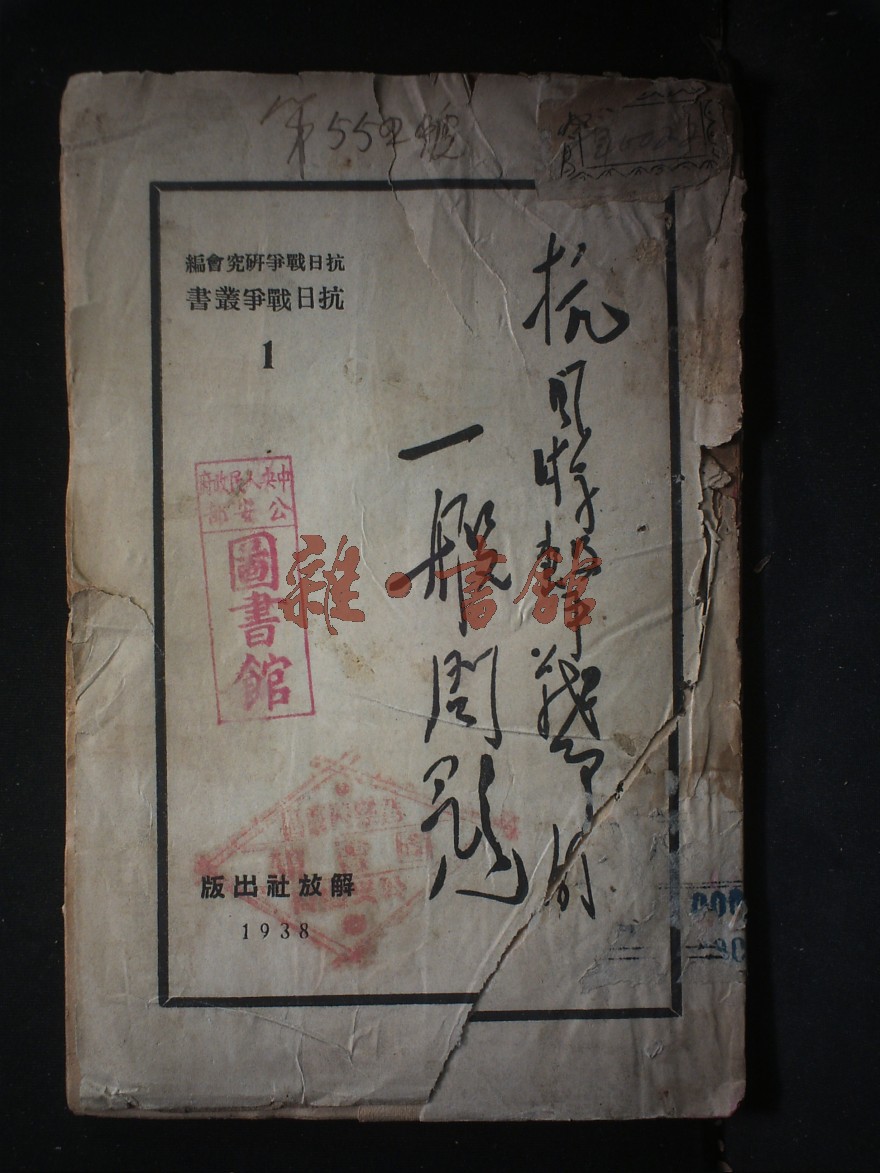 抗日游擊戰爭的
一般問題
抗日戰爭研究會編
抗日戰爭叢書
1
中央人民政府
公安部
圖書館
雜·書館
解放社出版
1938